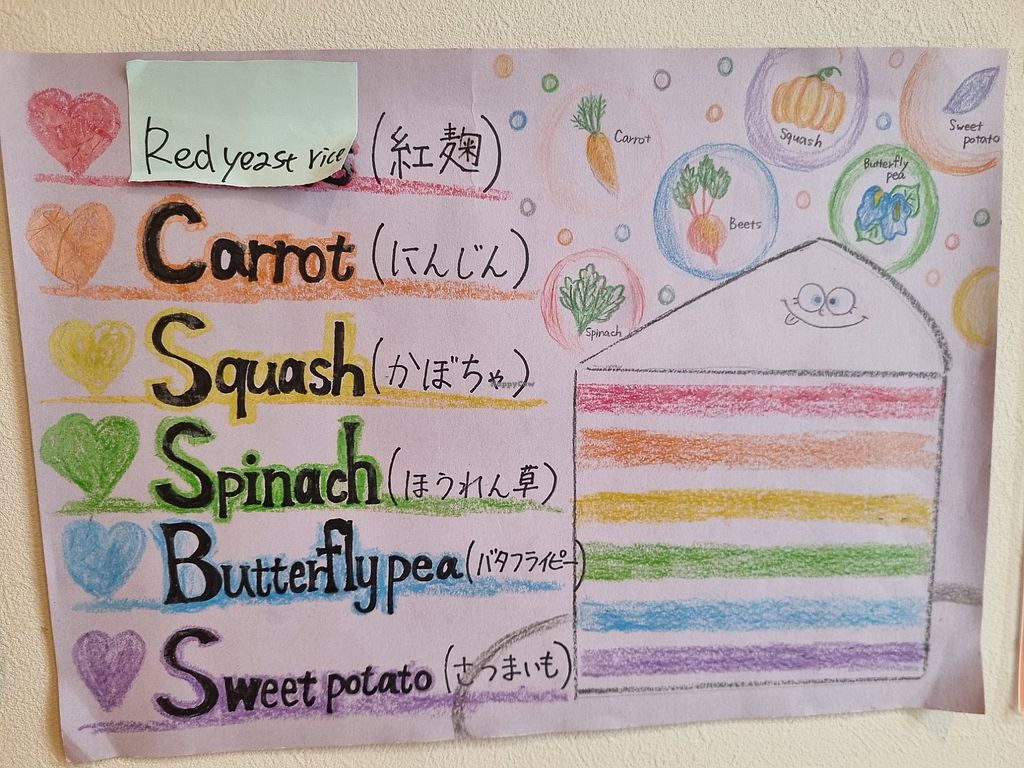 Red yeast rice (紅麹)
Carrot (にんじん)
Squash (かぼちゃ)
Spinach (ほうれん草)
Butterfly pea (バタフライピー)
Sweet potato (さつまいも)
Carrot
Squash
Sweet
potato
Beets
Butterfly
pea
Spinach
HappyCow